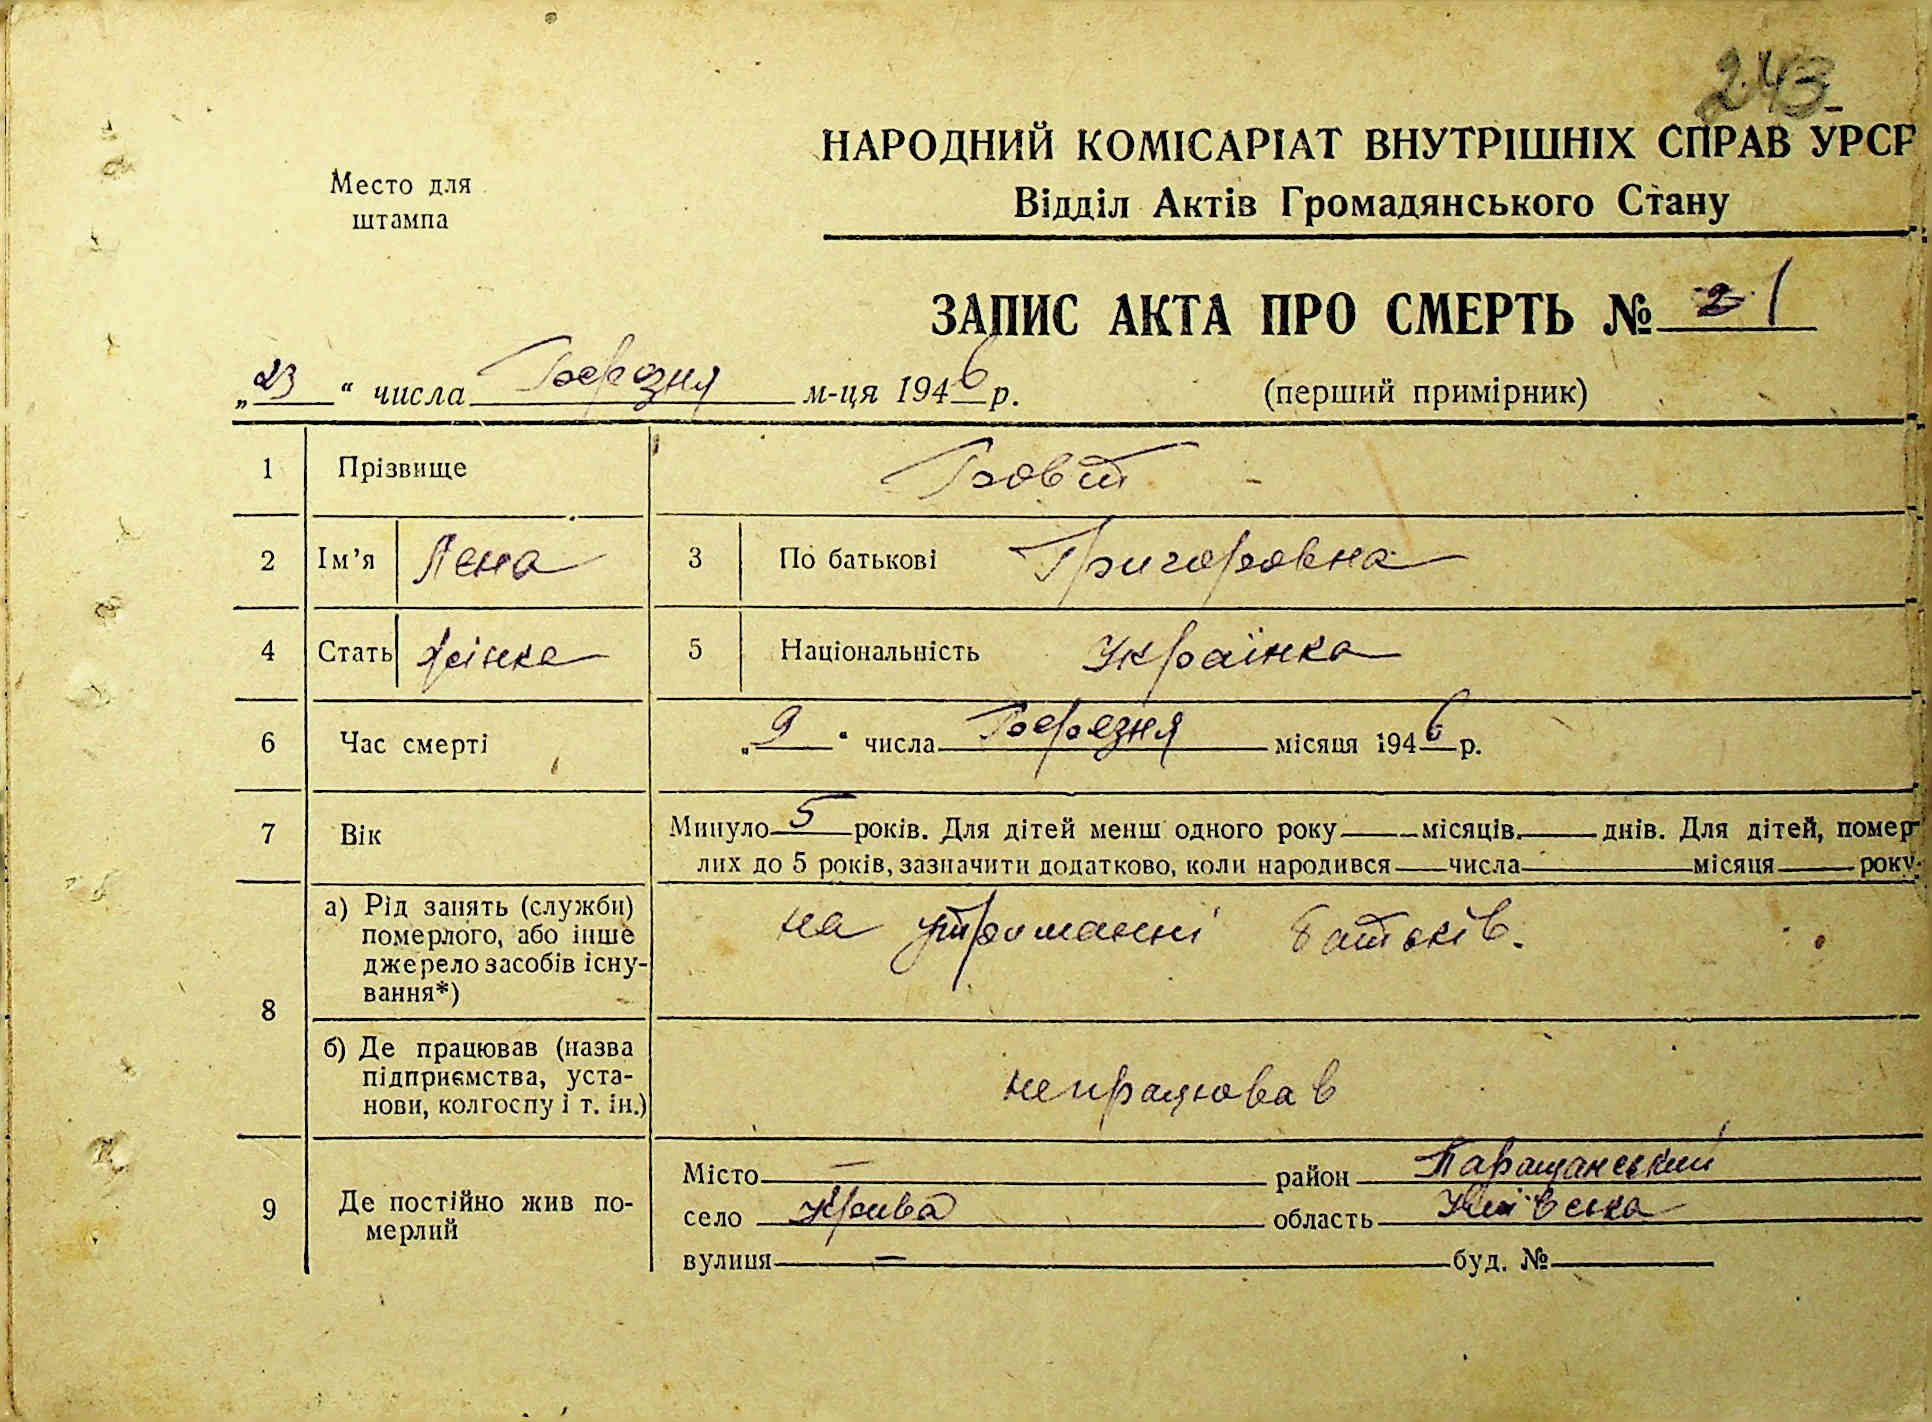 243
НАРОДНИЙ КОМІСАРІАТ ВНУТРІШНІХ СПРАВ УРСР
Место для
штампа
Відділ Актів Громадянського Стану
ЗАПИС АКТА ПРО СМЕРТЬ № 21
„23“ числа Березня м-ця 1946 р. (перший примірник)
1 Прізвище Бовт
2 Ім'я Лєна 3 По батькові Григоровна
4 Стать жінка 5 Національність Українка
6 Час смерті „9“ числа Березня місяця 1946 р.
7 Вік Минуло 5 років. Для дітей менш одного року — місяців — днів. Для дітей, помер-
лих до 5 років, зазначити додатково, коли народився — числа — місяця — року
8 а) Рід занять (служби)
померлого, або інше
джерело засобів існу-
вання*)
на утриманні батьків.
б) Де працював (назва
підприємства, уста-
нови, колгоспу і т. ін.)
непрацював
9 Де постійно жив по-
мерлий
Місто — район Таращанський
село Крива область Київська
вулиця — буд. №